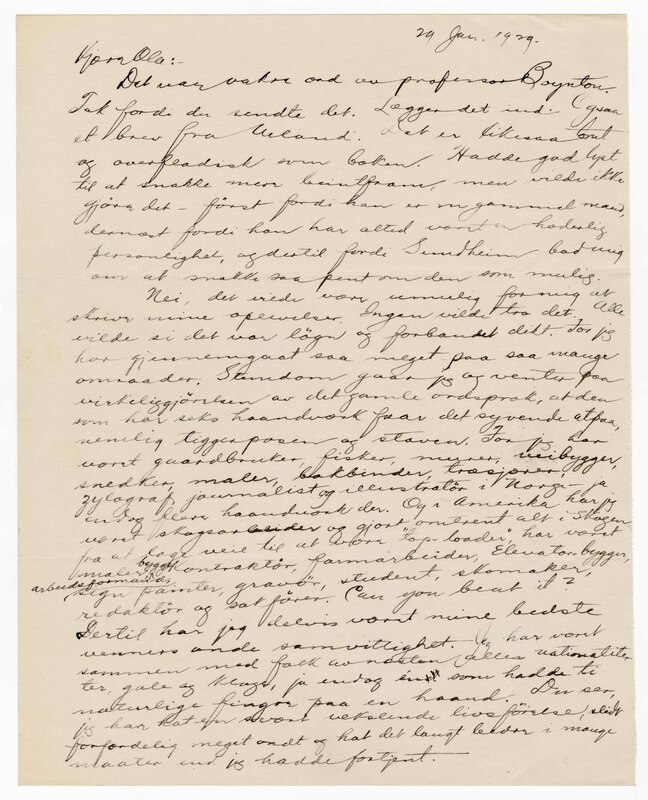 29 Jan. 1929.
Kjære Ola:-
Det var vakre ord av professor Boynton.
Tak fordi du sendte det. Lægger det ind. Ogsaa
et brev fra Ueland. Det er likesaa tomt
og overfladisk som boken. Hadde god lyst
til at snakke mere beintfram, men vilde ikke
gjöra det - först fordi han er en gammel mand,
dernæst fordi han har altid været en hæderlig
personlighet, og dertil fordi Sundheim bad mig
om at snakke saa pent om den som mulig.
Nei, det vilde være umulig for mig at
skrive mine oplevelser. Ingen vilde tro det. Alle
vilde si det var lögn og forbandet dikt. For jeg
har gjennemgaat saa meget paa saa mange
omraader. Stundom gaar jeg og venter paa
virkeliggjörelsen av det gamle ordsprok, at den
som har seks haandverk faar det syvende atpaa,
nemlig tiggerposen og staven. For jeg har
været gaardbruker, fisker, murer, veibygger,
snedker, maler, bokbinder, træskjærer,
zylograf, journalist og illustratör i Norge - ja
endog flere haandverk der. Og i Amerika har jeg
været skogsarbeider og gjort omtrent alt i skogen
fra at lage veie til at være "top-loader", har været
maler, bygge kontraktör, farmarbeider, Elevator-bygger,
arbeidsformand,
sign painter, gravör, student, skomaker,
redaktör og sætter. Can you beat it?
Dertil har jeg delvis været mine bedste
venners onde samvittighet. Jeg har været
sammen med folk av næsten alle nationaliter
ter, gale og kloge, ja endog en som hadde ti
naturlige fingre paa en haand. Du ser,
jeg har hat en svært vekslende livsförelse, slidt
forfærdelig meget ondt og hat det langt bedre i mange
maater end jeg hadde fortjent.